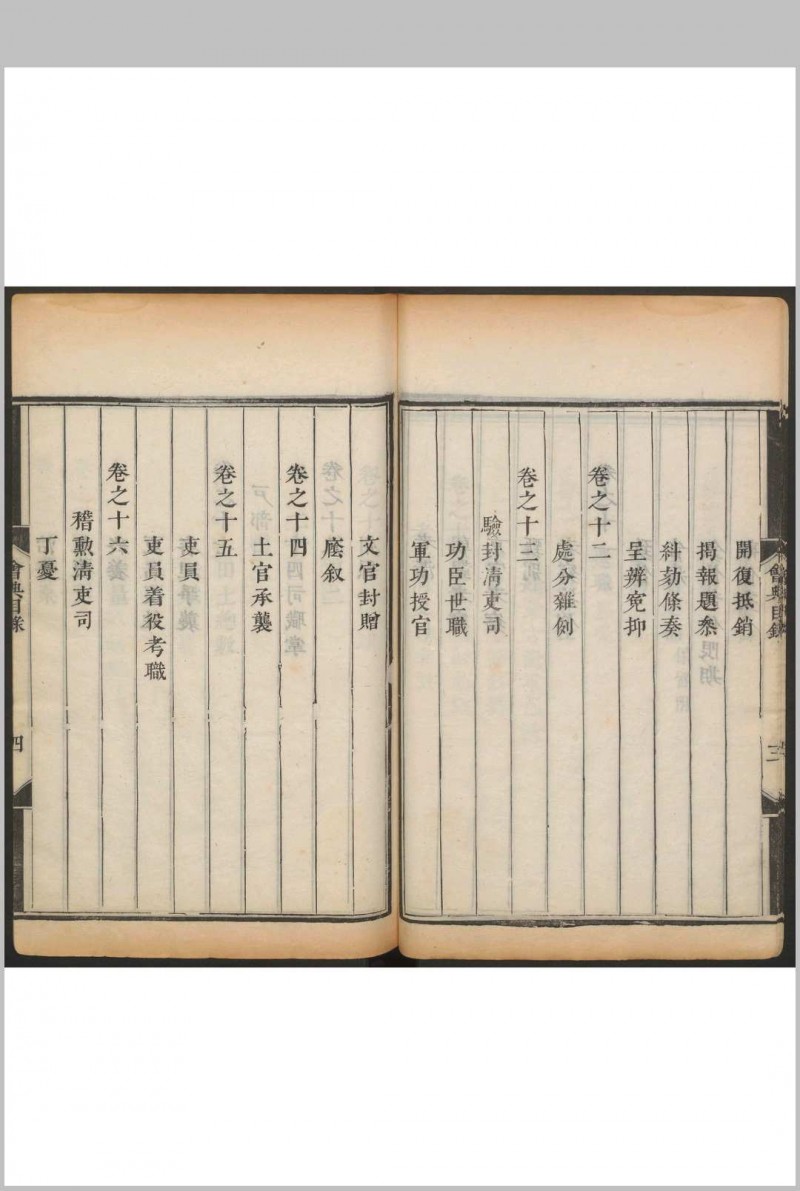 開復抵銷
揭報題叅
糾劾條奏
呈辨寃抑
卷之十二
處分雜例
卷之十三
驗封清吏司
功臣世職
軍功授官
文官封贈
廕叙
卷之十四
土官承襲
卷之十五
吏員
吏員着役考職
卷之十六
稽勲清吏司
丁憂
會典目錄
三
會典目錄
四